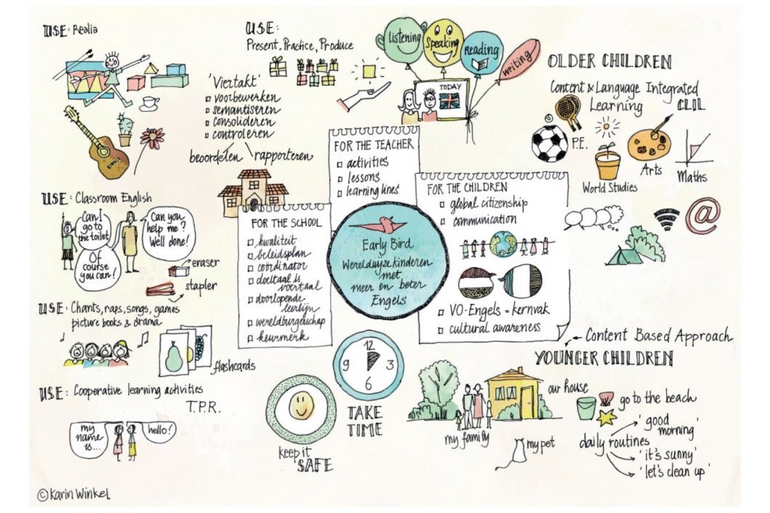 USE: Realia
USE:
Present, Practice, Produce
'Viertakt'
voorbewerken
semantiseren
consolideren
controleren
beoordelen
rapporteren
Listening
Speaking
Reading
Writing
TODAY
OLDER CHILDREN
Content & Language Integrated
Learning CLIL
P.E.
World Studies
Arts
Maths
@
USE: Classroom English
Can I
go to
the toilet?
Of
course
you can!
Can you
help me?
Well done!
eraser
stapler
USE: Chants, raps, songs, games
picture books & drama
flashcards
USE: Cooperative learning activities
T.P.R.
my
name
is...
hello!
FOR THE TEACHER
activities
lessons
learning lines
FOR THE SCHOOL
kwaliteit
beleidsplan
coördinator
doeltaal is
voertaal
doorlopende
leerlijn
wereldburgerschap
keurmerk
Early Bird
Wereldwijze kinderen
met
meer en beter
Engels
FOR THE CHILDREN
global citizenship
communication
VO-Engels = kernvak
cultural awareness
12
3
6
9
TAKE
TIME
keep it
SAFE
Content Based Approach
YOUNGER CHILDREN
our house
my family
my pet
go to the beach
daily routines
'good
morning'
'it's sunny'
'let's clean up'
©Karin Winkel